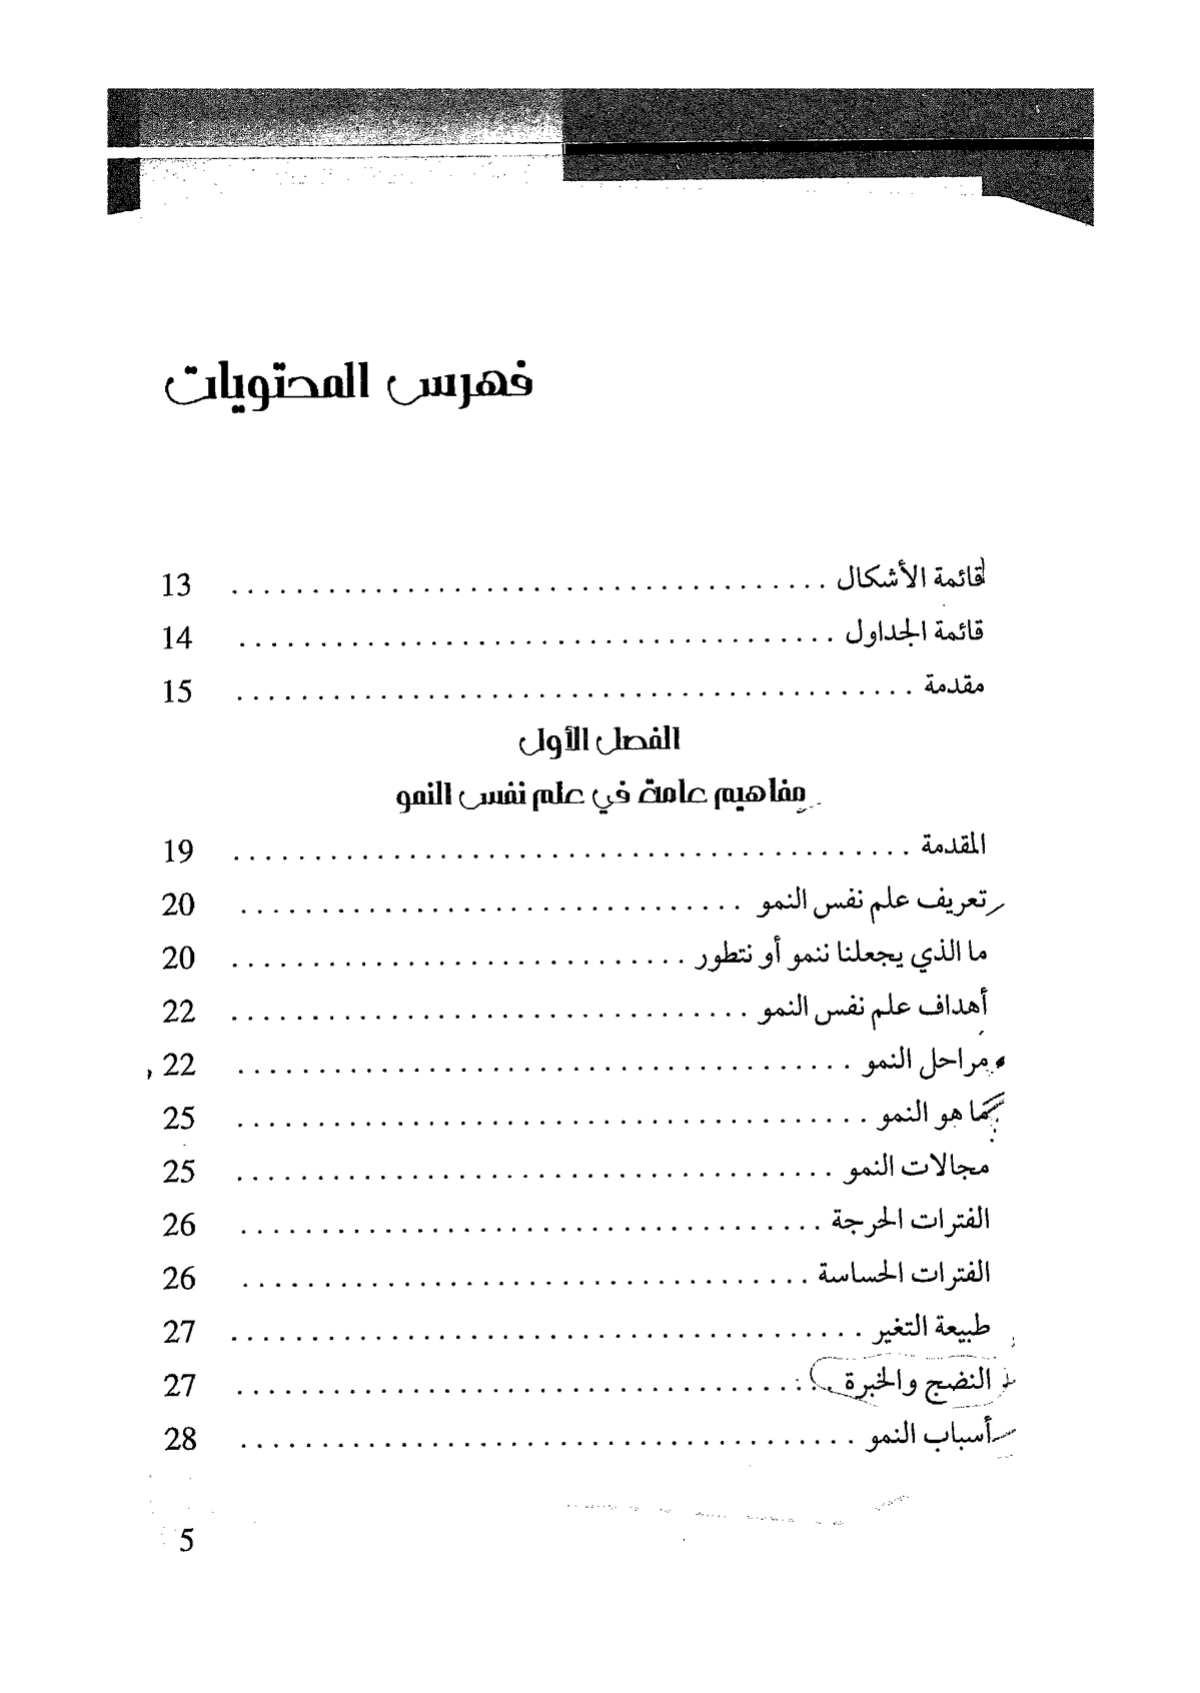 فهرس المحتويات
قائمة الأشكال . . . . . . . . . . . . . . . . . . . . 13
قائمة الجداول . . . . . . . . . . . . . . . . . . . . 14
مقدمة . . . . . . . . . . . . . . . . . . . . 15
الفصل الأول
مفاهيم عامة في علم نفس النمو
المقدمة . . . . . . . . . . . . . . . . . . . . 19
تعريف علم نفس النمو . . . . . . . . . . . . . . . . . . . . 20
ما الذي يجعلنا ننمو أو نتطور . . . . . . . . . . . . . . . . . . . . 20
أهداف علم نفس النمو . . . . . . . . . . . . . . . . . . . . 22
مراحل النمو . . . . . . . . . . . . . . . . . . . . 22
ما هو النمو . . . . . . . . . . . . . . . . . . . . 25
مجالات النمو . . . . . . . . . . . . . . . . . . . . 25
الفترات الحرجة . . . . . . . . . . . . . . . . . . . . 26
الفترات الحساسة . . . . . . . . . . . . . . . . . . . . 26
طبيعة التغير . . . . . . . . . . . . . . . . . . . . 27
النضج والخبرة . . . . . . . . . . . . . . . . . . . . 27
أسباب النمو . . . . . . . . . . . . . . . . . . . . 28
5